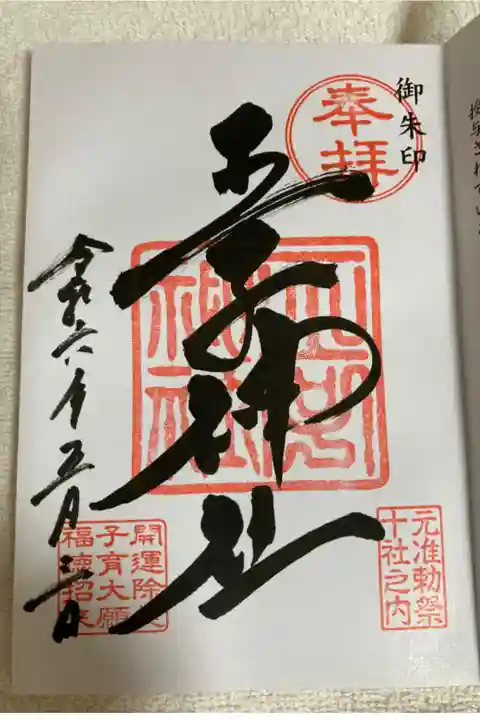 御朱印
奉拝
王子神社
元准勅祭
十社之内
令和六年五月三日
開運除災
子育大願
福徳招来